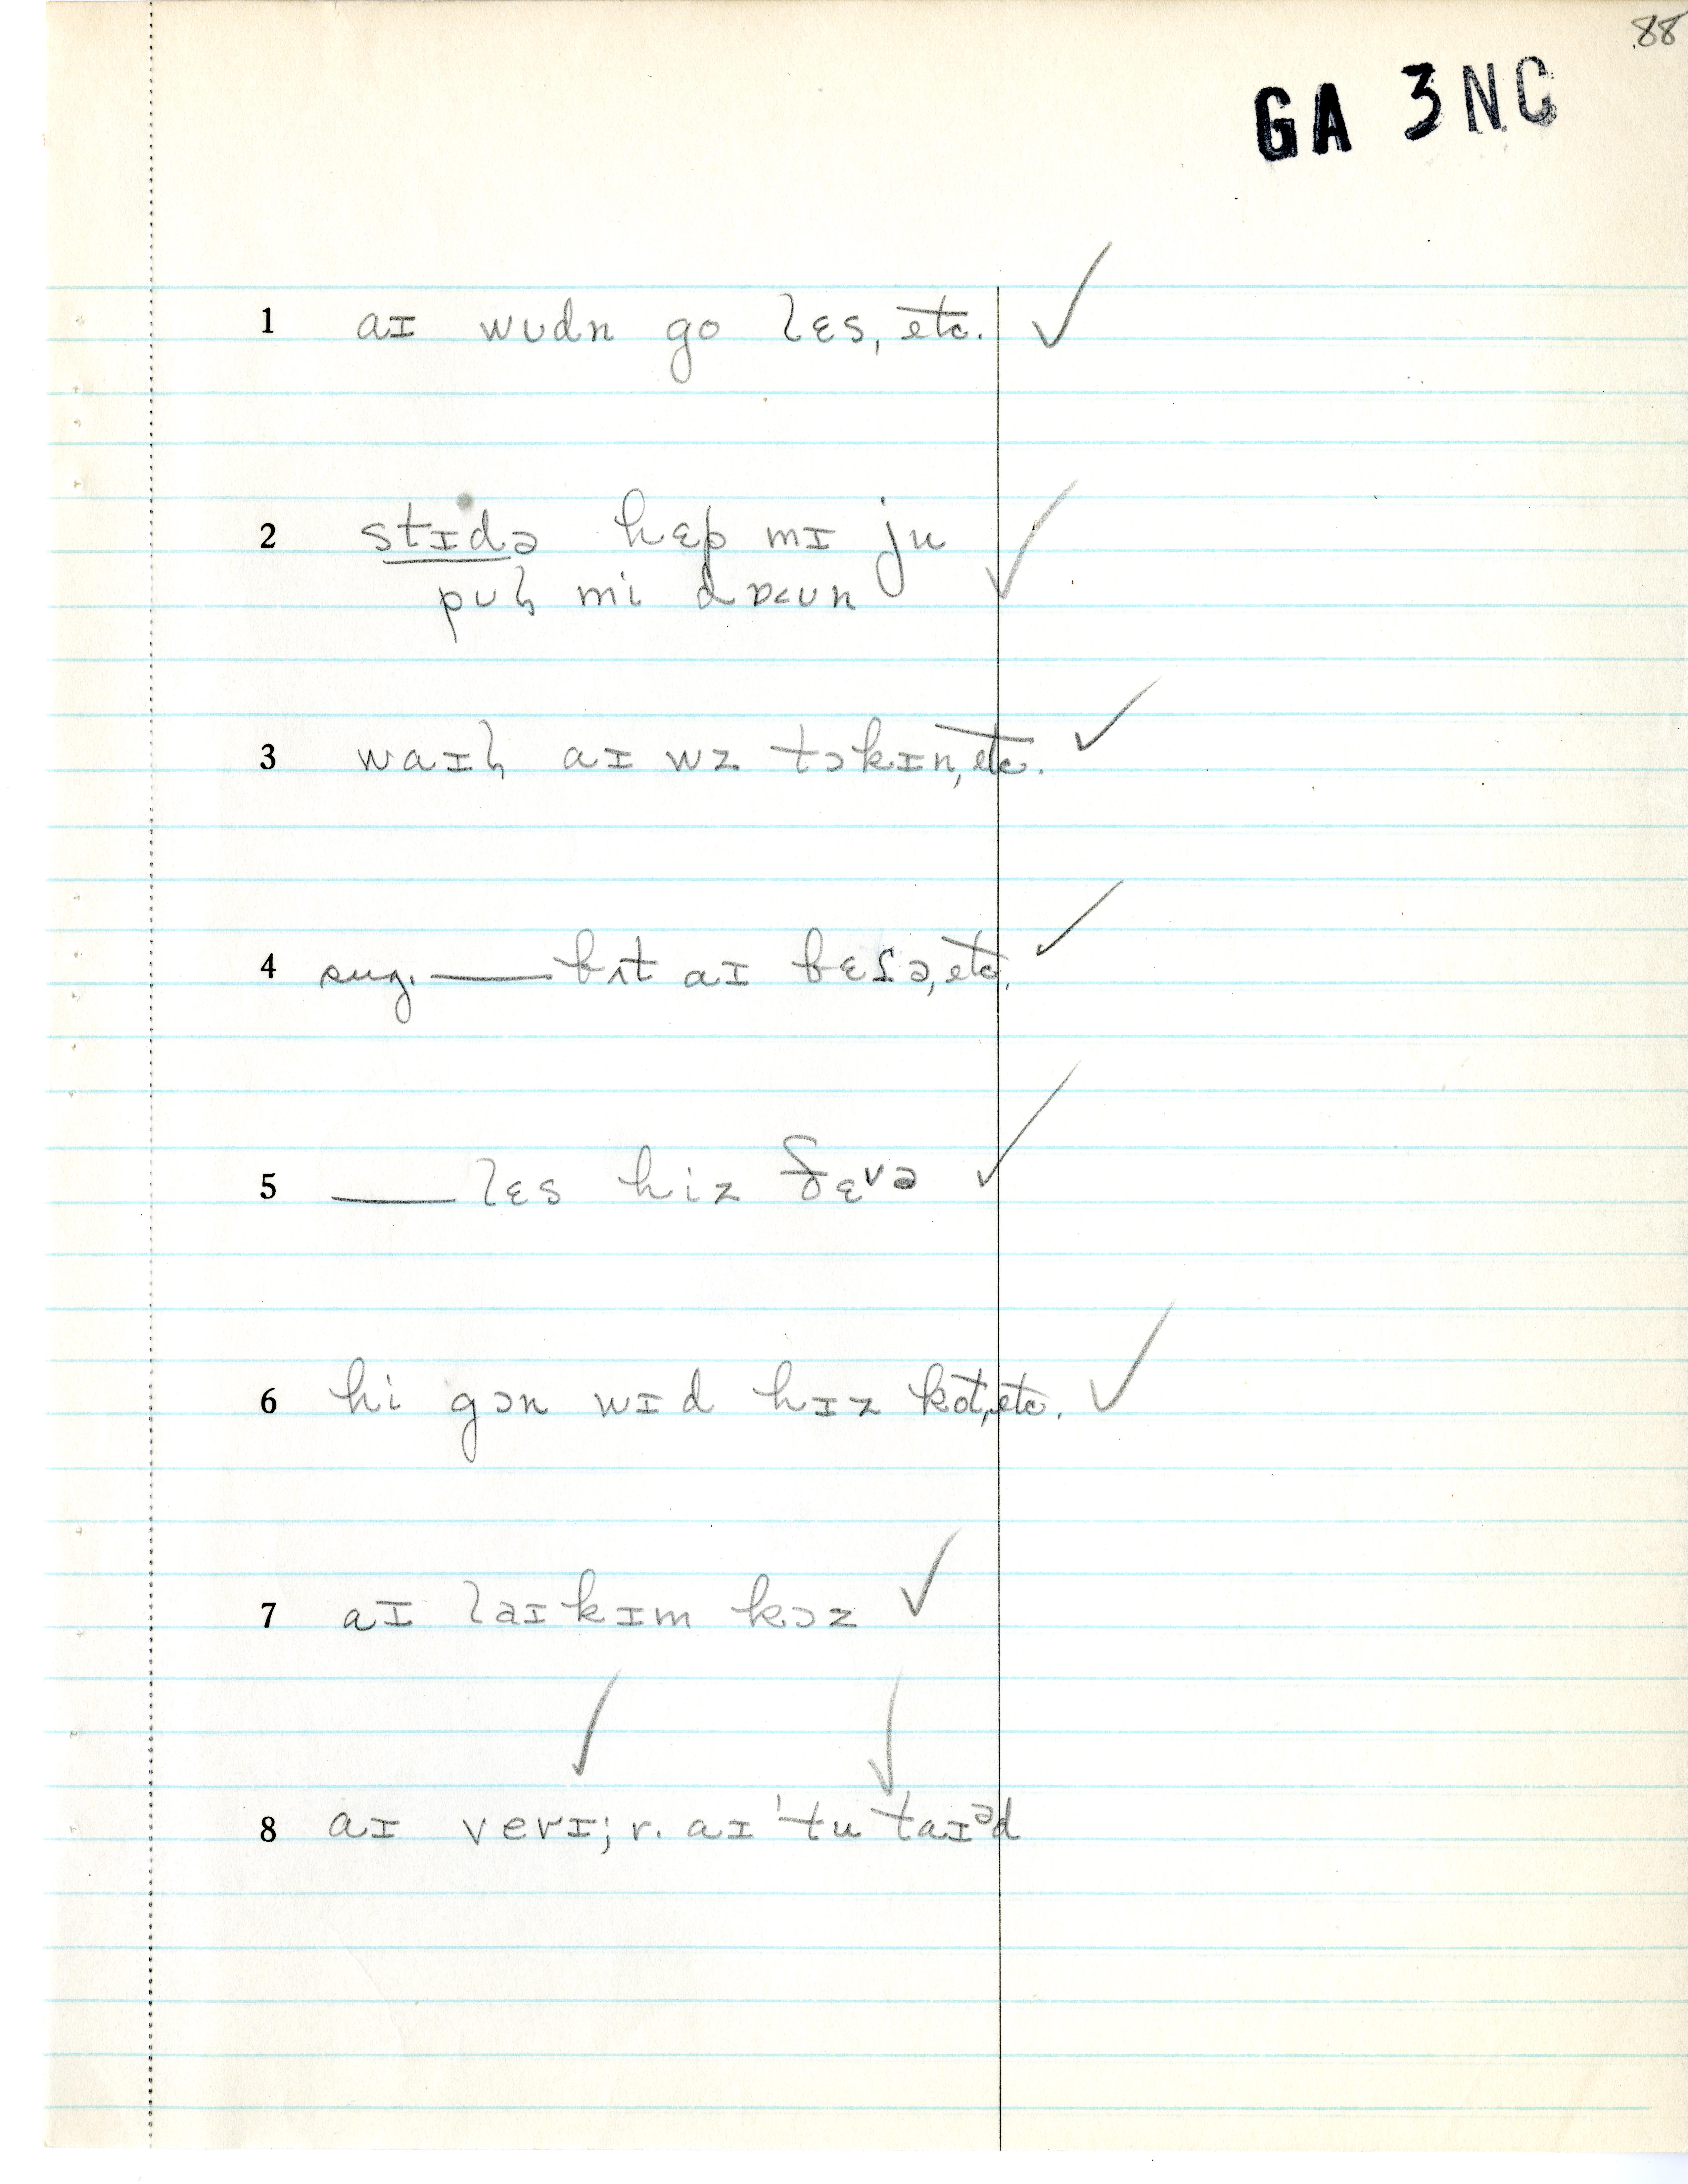 88
GA 3NC
1 aɪ wʊdn go lɛs, etc. ✓
2 stɪdə hɛp mɪ ju ✓
pʊɫ mi dɒ<ʊn
3 waɪɫ aɪ wz tɔkɪn, etc. ✓
4 sug. —— bʌt aɪ bɛɾə, etc. ✓
5 —— lɛs hiz ðɛvə ✓
6 hi gɔn wɪd hɪz kot, etc. ✓
7 aɪ laɪkɪm kɔz ✓
✓ ✓
8 aɪ verɪ; r. aɪ 'tu taɪᵊd